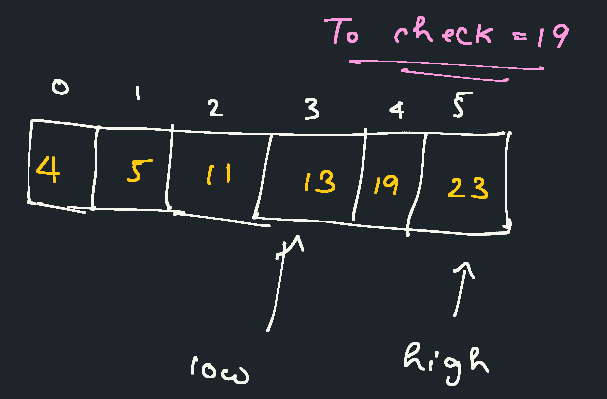 To check = 19
0 1 2 3 4 5
4 5 11 13 19 23
low high